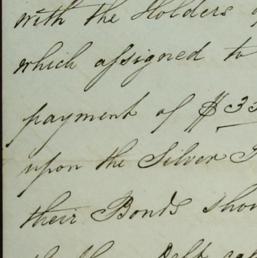 with the Holders
which assigned to
payment of $33
upon the Silver
their Bonds